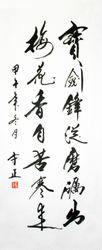 寶劍鋒從磨礪出
梅花香自苦寒来
甲午年冬月 李正